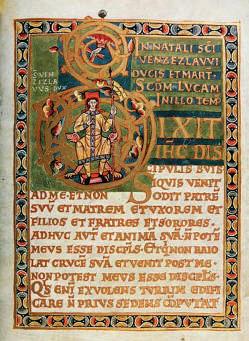 IN NATALI SC̄I
VENZEZLAVVI
DVCIS ET MART
SCDM LVCAM
IN ILLO TEM
S VVEN
ZEZLA
VVS DVX
DIXIT
IHC DIS
CIPVLIS SVIS
SIQVIS VENIT
AD ME ET NON ODIT PATRĒ
SVV̄ ET MATREM ET VXOREM ET
FILIOS ET FRATRES ET SORORES
ADHVC AVT̄ ET ANIMA SVĀ N̄ POTĒ
MEVS ESSE DISCLS̄ ET Q̄ NON BAIV
LAT CRVCĒ SVĀ ET VENIT POST ME
NON POTEST MEVS ESSE DISCPLS̄
QS̄ ENĪ EX VOBIS VOLENS TVRRIM EDIFI
CARE N̄ PRIVS SEDENS CŌPVTAT